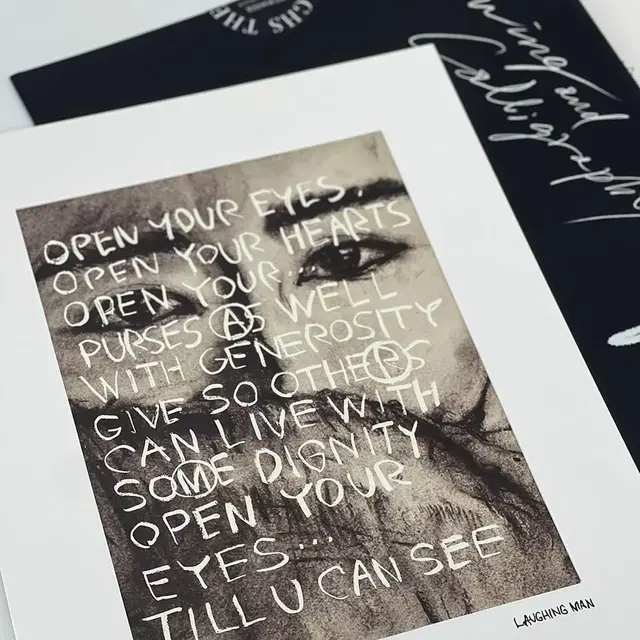 GHS THE
and
Calligraphy
OPEN YOUR EYES,
OPEN YOUR HEARTS
OPEN YOUR
PURSES AS WELL
WITH GENEROSITY
GIVE SO OTHERS
CAN LIVE WITH
SOME DIGNITY
OPEN YOUR
EYES...
TILL U CAN SEE
LAUGHING MAN